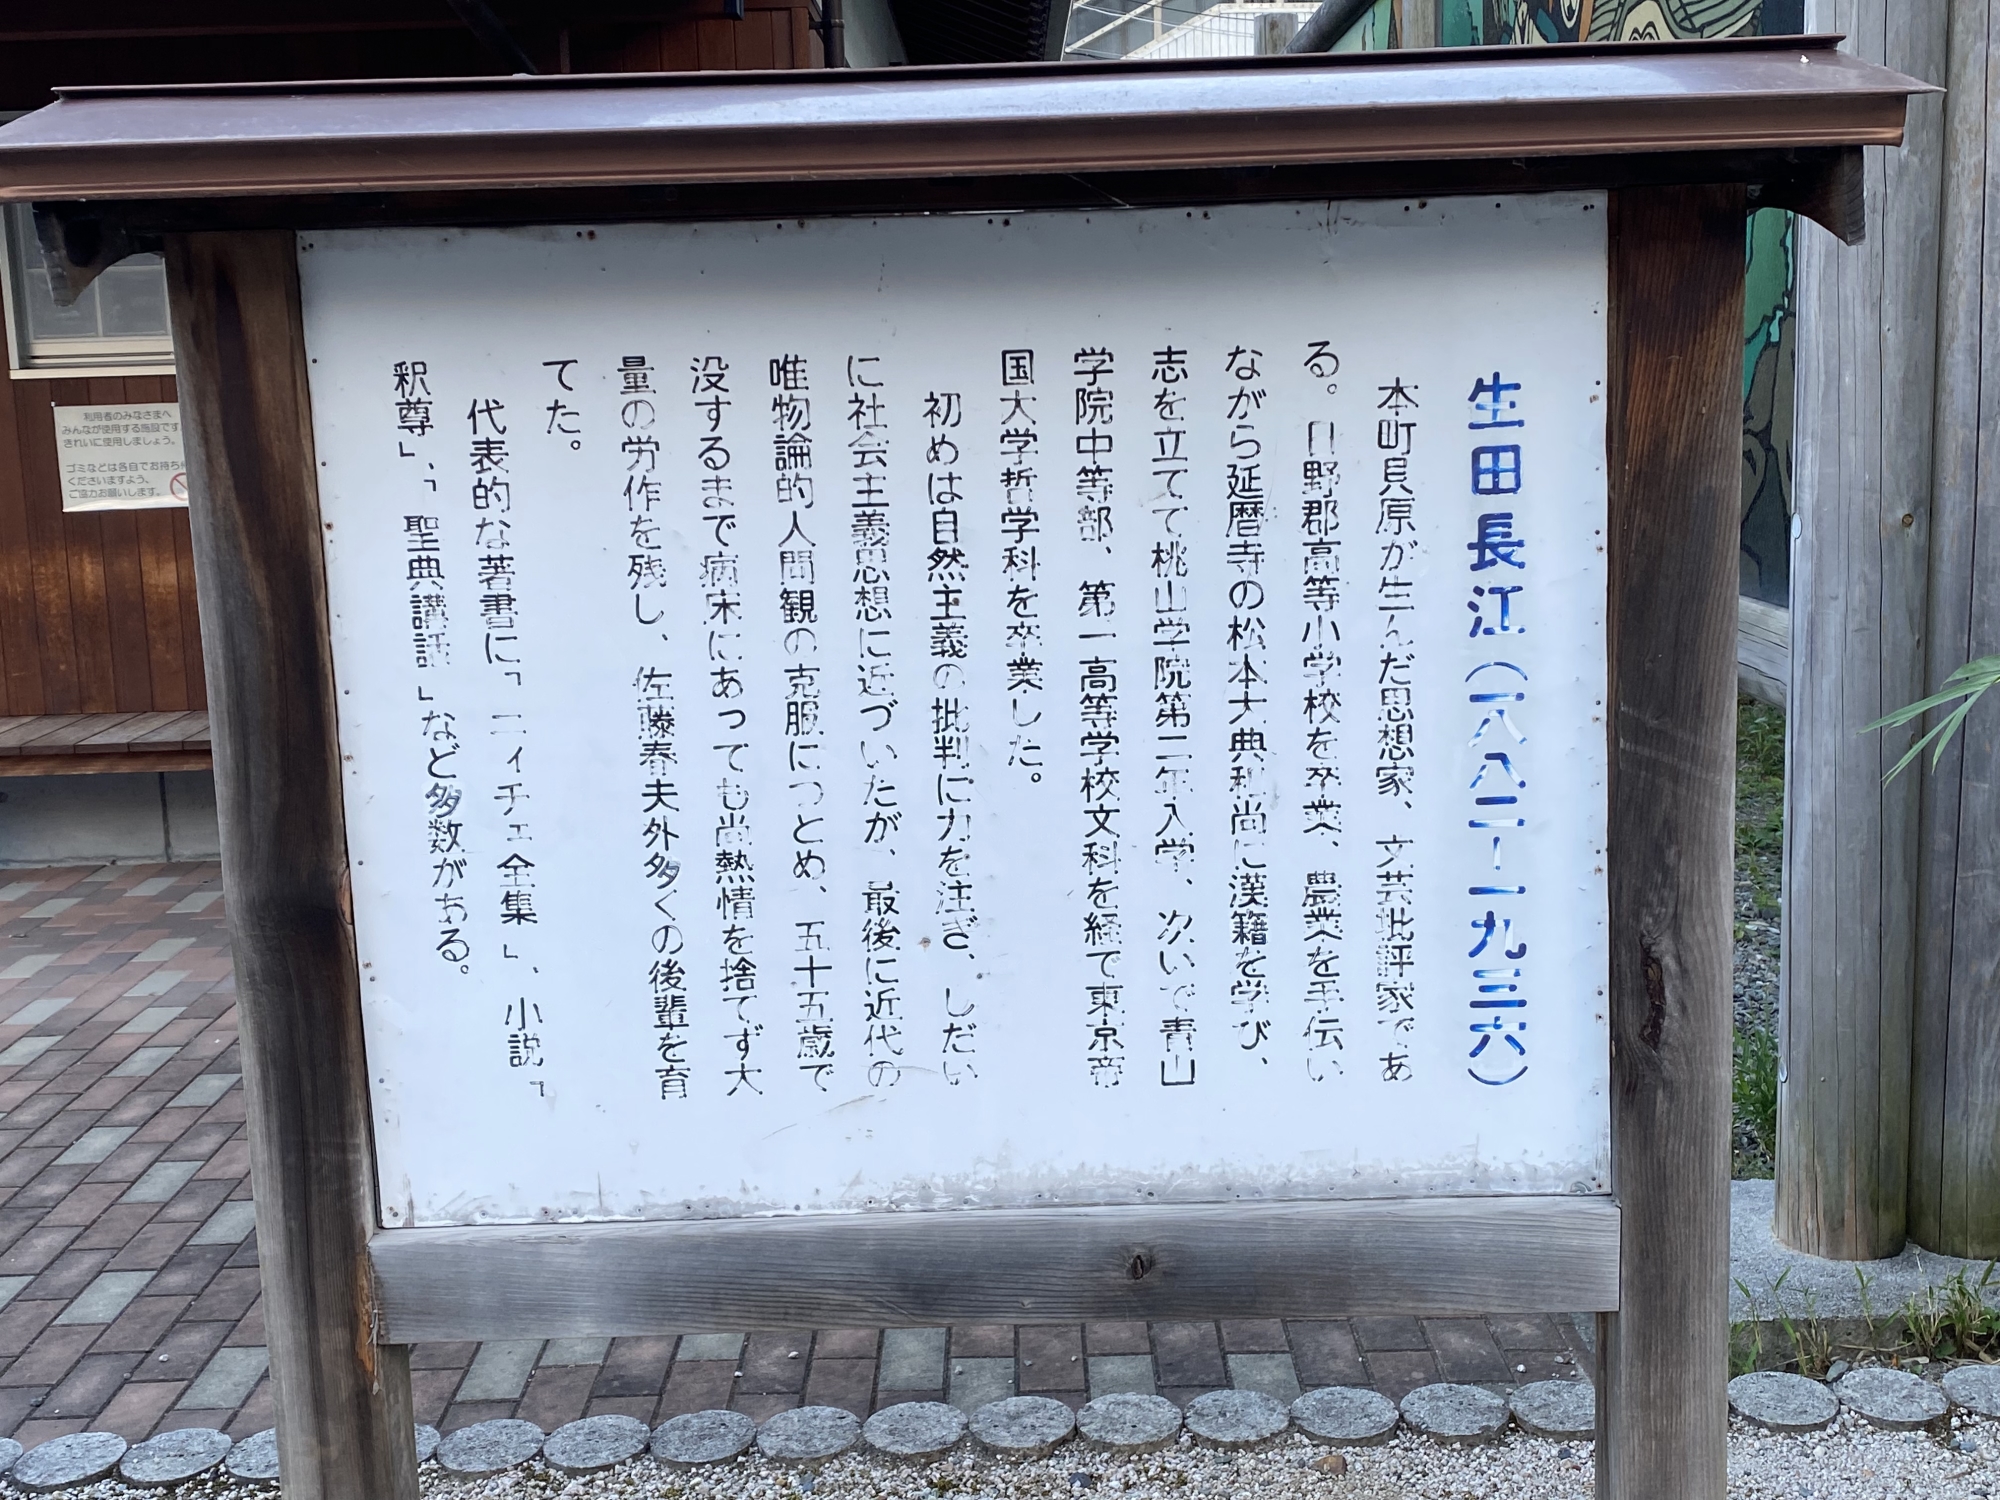 生田長江（一八八二ー一九三六）
本町貝原が生んだ思想家、文芸批評家であ
る。日野郡高等小学校を卒業、農業を手伝い
ながら延暦寺の松本大典和尚に漢籍を学び、
志を立てて桃山学院第二年入学、次いで青山
学院中等部、第一高等学校文科を経て東京帝
国大学哲学科を卒業した。
初めは自然主義の批判に力を注ぎ、しだい
に社会主義思想に近づいたが、最後に近代の
唯物論的人間観の克服につとめ、五十五歳で
没するまで病床にあっても尚熱情を捨てず大
量の労作を残し、佐藤春夫外多くの後輩を育
てた。
代表的な著書に「ニィチェ全集」、小説「
釈尊」、「聖典講話」など多数がある。
利用者のみなさまへ
みんなが使用する施設です
きれいに使用しましょう。
ゴミなどは各自でお持ち
くださいますよう、
ご協力お願いします。